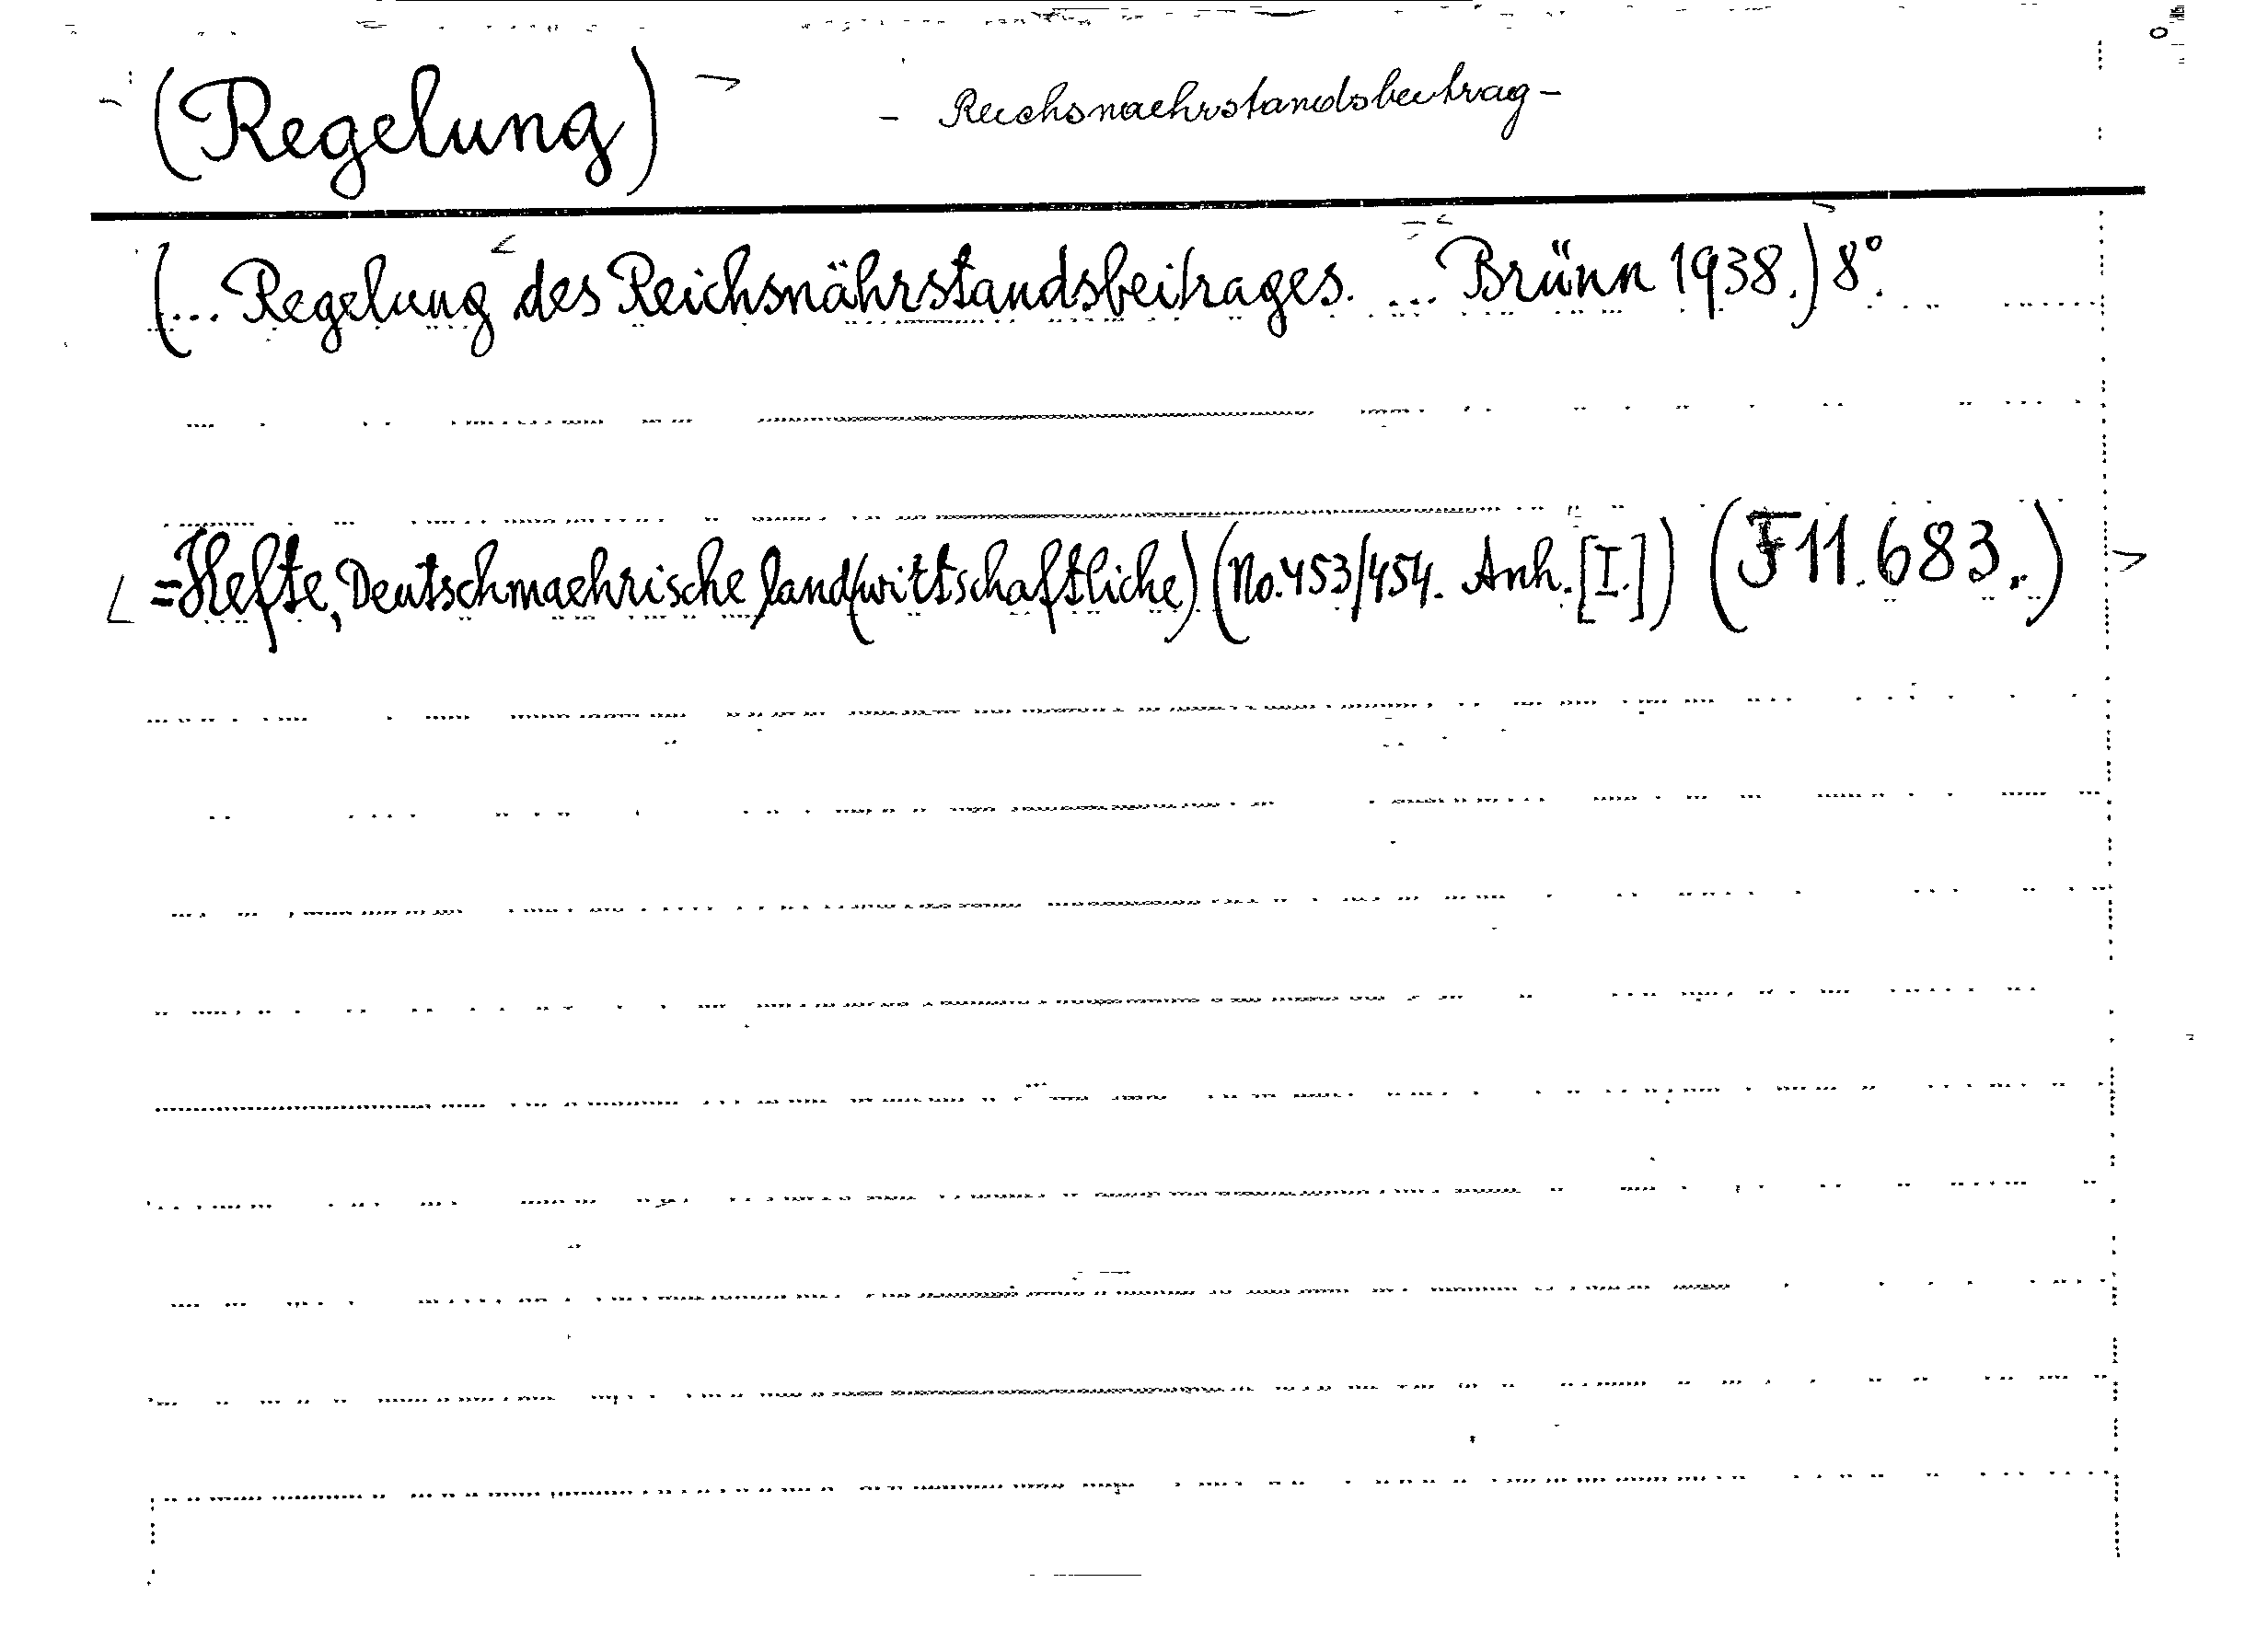 (Regelung) - Reichsnaehrstandsbeitrag -
(... Regelung des Reichsnährstandsbeitrages. ... Brünn 1938.) 8°.
=Hefte, Deutschmaehrische land(wirtschaftliche) (No. 453/454. Anh. [I.]) (F 11.683.)